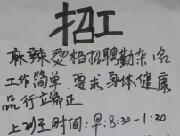 招工
麻辣烫档招聘勤杂1名
工作简单.要求身体健康
品行立端正
上班主时间:早:8:30-1:30